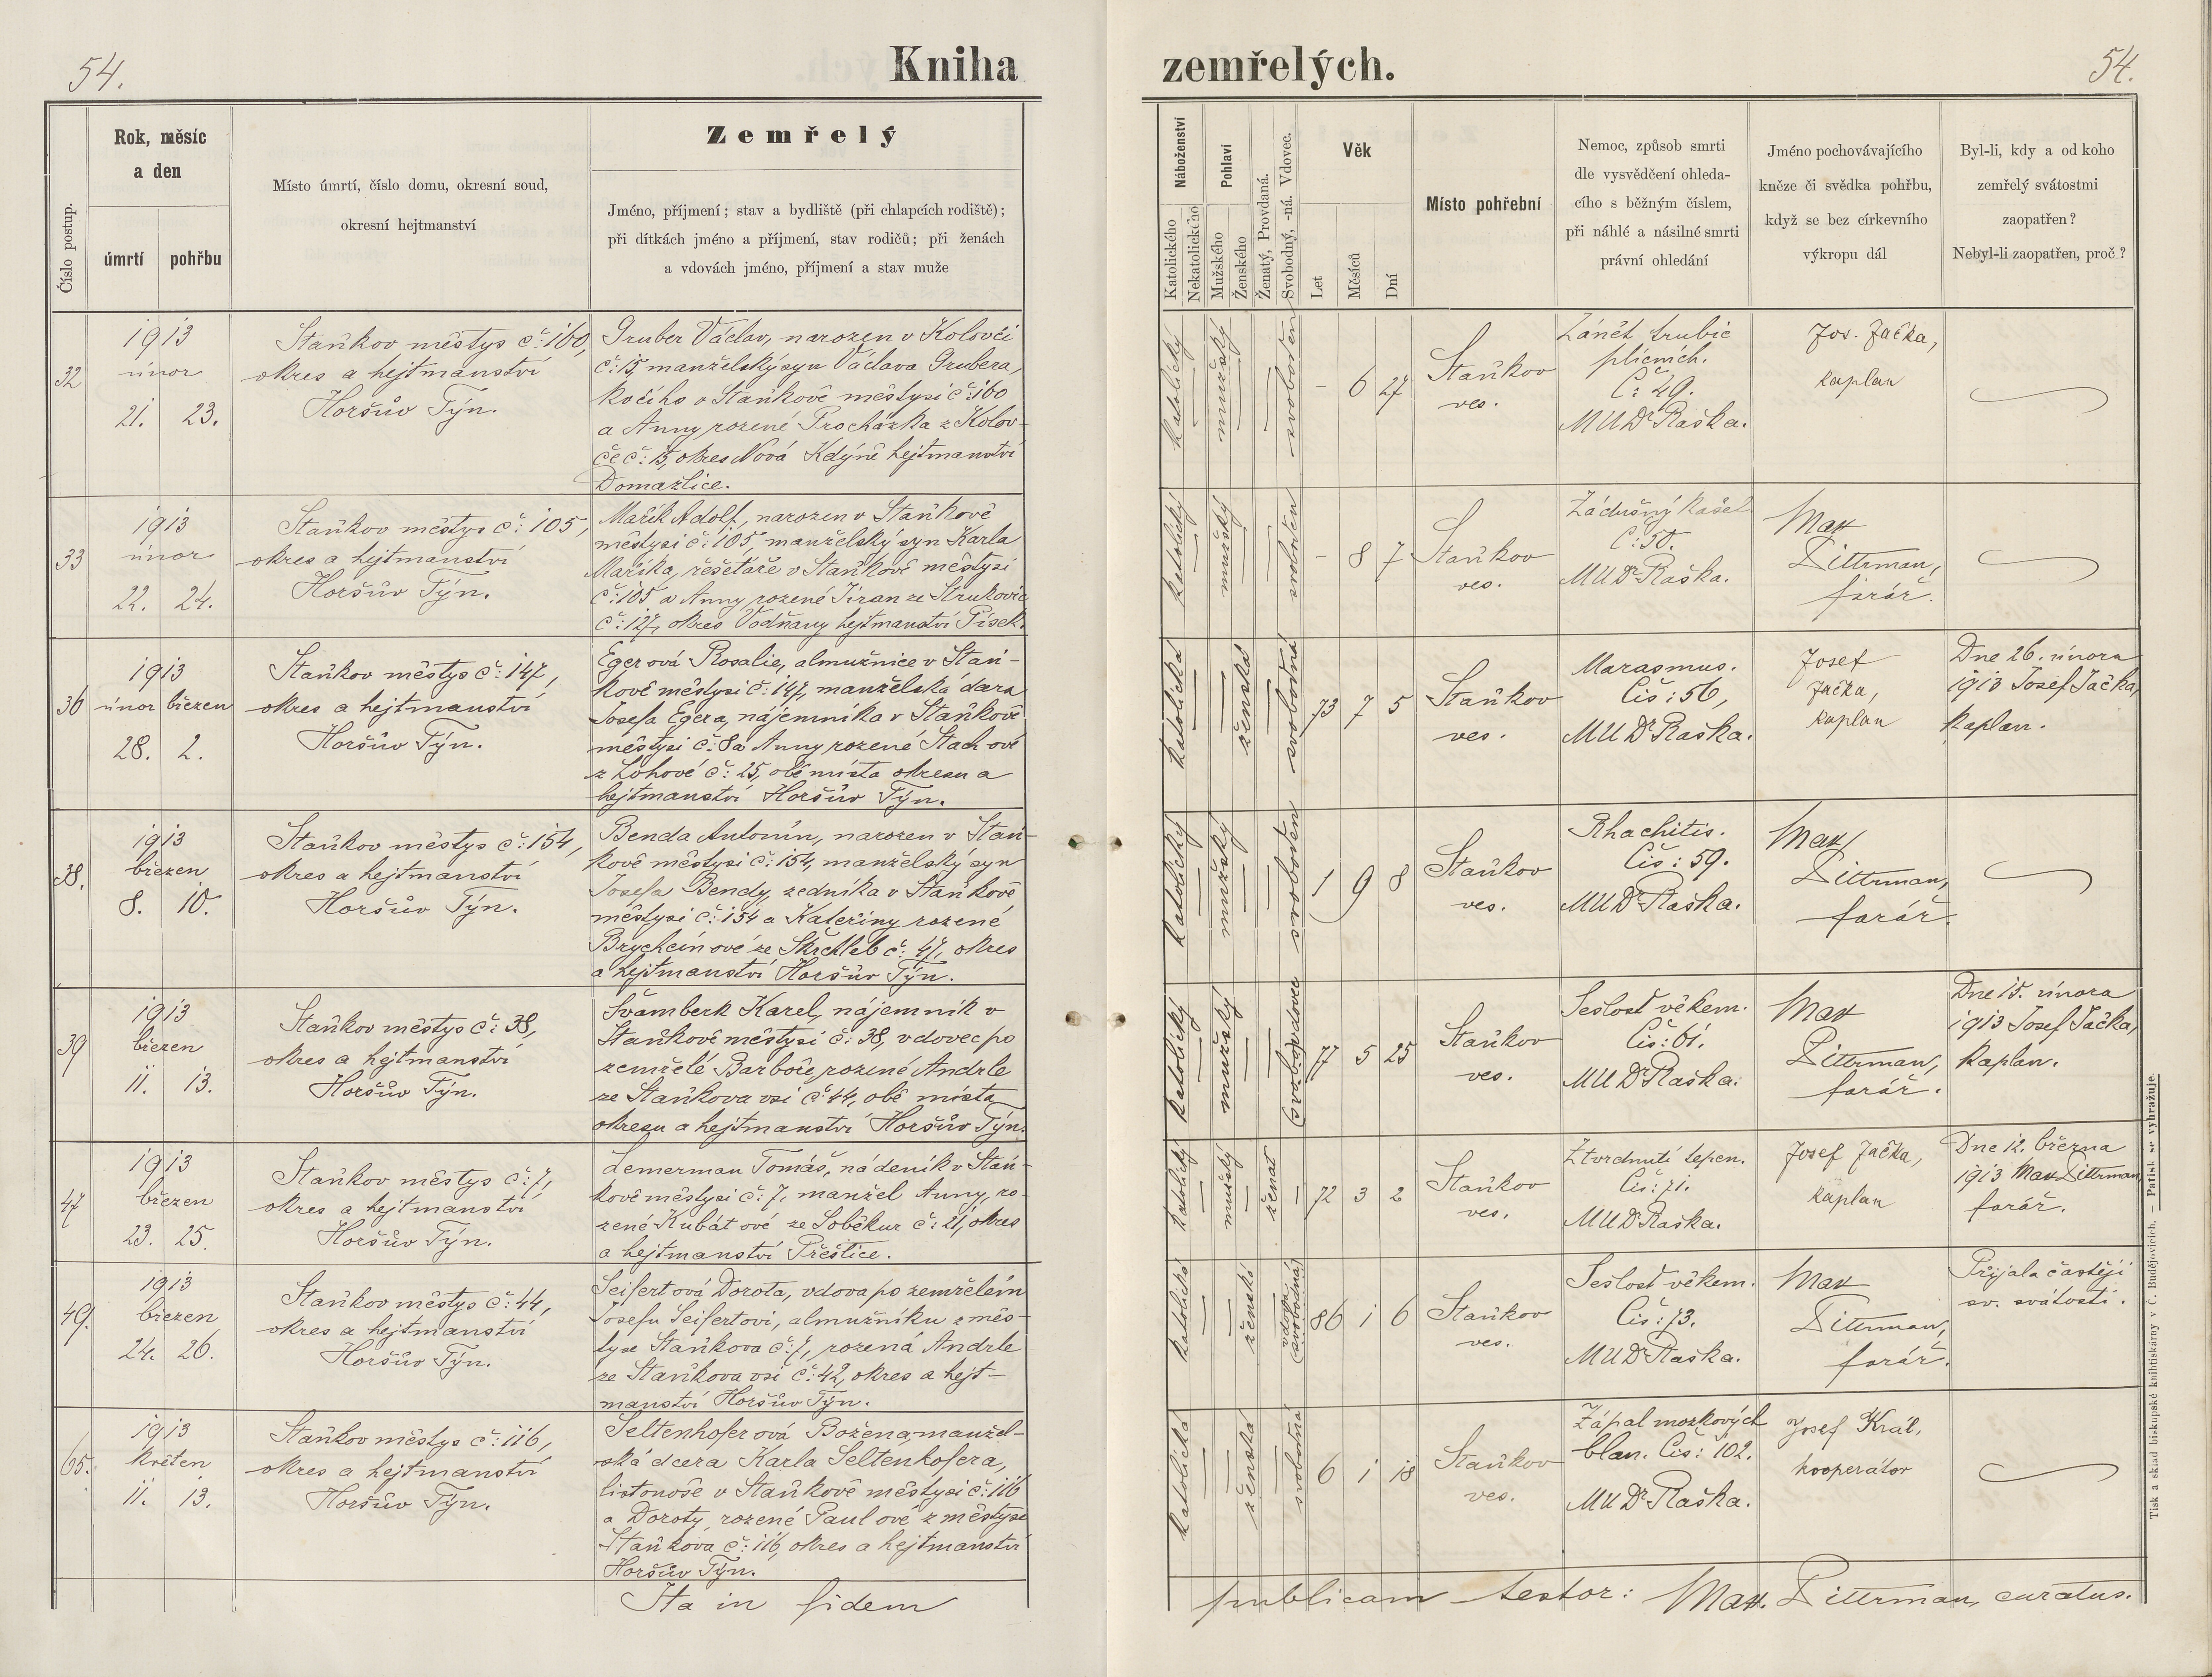 54.
Kniha
zemřelých.
54.
Číslo postup.
Rok, měsíc
a den
úmrtí
pohřbu
Místo úmrtí, číslo domu, okresní soud,
okresní hejtmanství
Zemřelý
Jméno, příjmení; stav a bydliště (při chlapcích rodiště);
při dítkách jméno a příjmení, stav rodičů; při ženách
a vdovách jméno, příjmení a stav muže
Náboženství
Katolického
Nekatolického
Pohlaví
Mužského
Ženského
Ženatý, Provdaná.
Svobodný, -ná. Vdovec.
Věk
Let
Měsíců
Dní
Místo pohřební
Nemoc, způsob smrti
dle vysvědčení ohleda-
cího s běžným číslem,
při náhlé a násilné smrti
právní ohledání
Jméno pochovávajícího
kněze či svědka pohřbu,
když se bez církevního
výkropu dál
Byl-li, kdy a od koho
zemřelý svátostmi
zaopatřen?
Nebyl-li zaopatřen, proč?
32
1913
únor
21. 23.
Staňkov městys č: 160,
okres a hejtmanství
Horšův Týn.
Gruber Václav, narozen v Kolovči
č: 15, manželský syn Václava Grubera,
kočího v Staňkově městysi č: 160
a Anny rozené Procházka z Kolov-
če č: 15, okres Nová Kdýně hejtmanství
Domažlice.
katolický
mužský
svoboden
– 6 27
Staňkov
ves.
Zánět trubic
plicních.
Č: 49.
MUDr Raška.
Jos. Jačka,
kaplan
33
1913
únor
22. 24.
Staňkov městys č: 105,
okres a hejtmanství
Horšův Týn.
Mařík Adolf, narozen v Staňkově
městysi č: 105, manželský syn Karla
Maříka, řešetáře v Staňkově městysi
č: 105 a Anny rozené Jiran ze Strunkovic
č: 127, okres Vodňany hejtmanství Písek.
katolický
mužský
svoboden
– 8 7
Staňkov
ves.
Zádušný kašel
Č: 50.
MUDr Raška.
Max
Dittrman,
farář.
36
1913
únor březen
28. 2.
Staňkov městys č: 147,
okres a hejtmanství
Horšův Týn.
Egerová Rosalie, almužnice v Staň-
kově městysi č: 147, manželská dcera
Josefa Egera, nájemníka v Staňkově
městysi č: 8 a Anny rozené Stachové
z Lohové č: 25, obě místa okresu a
hejtmanství Horšův Týn.
katolická
ženská
svobodná
73 7 5
Staňkov
ves.
Marasmus.
Čís: 56,
MUDr Raška.
Josef
Jačka,
kaplan
Dne 26. února
1913 Josef Jačka,
kaplan.
38.
1913
březen
8. 10.
Staňkov městys č: 154,
okres a hejtmanství
Horšův Týn.
Benda Antonín, narozen v Staň-
kově městysi č: 154, manželský syn
Josefa Bendy, zedníka v Staňkově
městysi č: 154 a Kateřiny rozené
Brychcínové ze Skřchleb č: 47, okres
a hejtmanství Horšův Týn.
katolický
mužský
svoboden
1 9 8
Staňkov
ves.
Rhachitis.
Čís: 59.
MUDr Raška.
Max
Dittrman,
farář.
39
1913
březen
11. 13.
Staňkov městys č: 38,
okres a hejtmanství
Horšův Týn.
Švamberk Karel, nájemník v
Staňkově městysi č: 38, vdovec po
zemřelé Barboře rozené Andrle
ze Staňkova vsi č: 44, obě místa
okresu a hejtmanství Horšův Týn.
katolický
mužský
vdovec
77 5 25
Staňkov
ves.
Sešlost věkem.
Čís: 61.
MUDr Raška.
Max
Dittrman,
farář.
Dne 15. února
1913 Josef Jačka,
kaplan.
47
1913
březen
23. 25.
Staňkov městys č: 7,
okres a hejtmanství
Horšův Týn.
Lemerman Tomáš, nádeník v Staň-
kově městysi č: 7, manžel Anny, ro-
zené Kubátové ze Soběkur č: 21, okres
a hejtmanství Přeštice.
katolický
mužský
ženat
72 3 2
Staňkov
ves.
Ztvrdnutí tepen.
Čís: 71.
MUDr Raška.
Josef Jačka,
kaplan
Dne 12. března
1913 Max Dittrman,
farář.
49.
1913
březen
24. 26.
Staňkov městys č: 44,
okres a hejtmanství
Horšův Týn.
Seifertová Dorota, vdova po zemřelém
Josefu Seifertovi, almužníku z měs-
tyse Staňkova č: 7, rozená Andrle
ze Staňkova vsi č: 42, okres a hejt-
manství Horšův Týn.
katolická
ženská
vdova
(svobodná)
86 1 6
Staňkov
ves.
Sešlost věkem.
Čís: 73.
MUDr Raška.
Max
Dittrman,
farář.
Přijala častěji
sv. svátosti.
65.
1913
květen
11. 13.
Staňkov městys č: 116,
okres a hejtmanství
Horšův Týn.
Seltenhoferová Božena, manžel-
ská dcera Karla Seltenhofera,
listonoše v Staňkově městysi č: 116
a Doroty, rozené Paulové z městyse
Staňkova č: 116, okres a hejtmanství
Horšův Týn.
katolická
ženská
svobodná
6 1 18
Staňkov
ves.
Zápal mozkových
blan. Čís: 102.
MUDr Raška.
Josef Král,
kooperátor
Ita in fidem
publicam testor: Max. Dittrman, curatus.
Tisk a sklad biskupské knihtiskárny v Č. Budějovicích. – Patisk se vyhražuje.